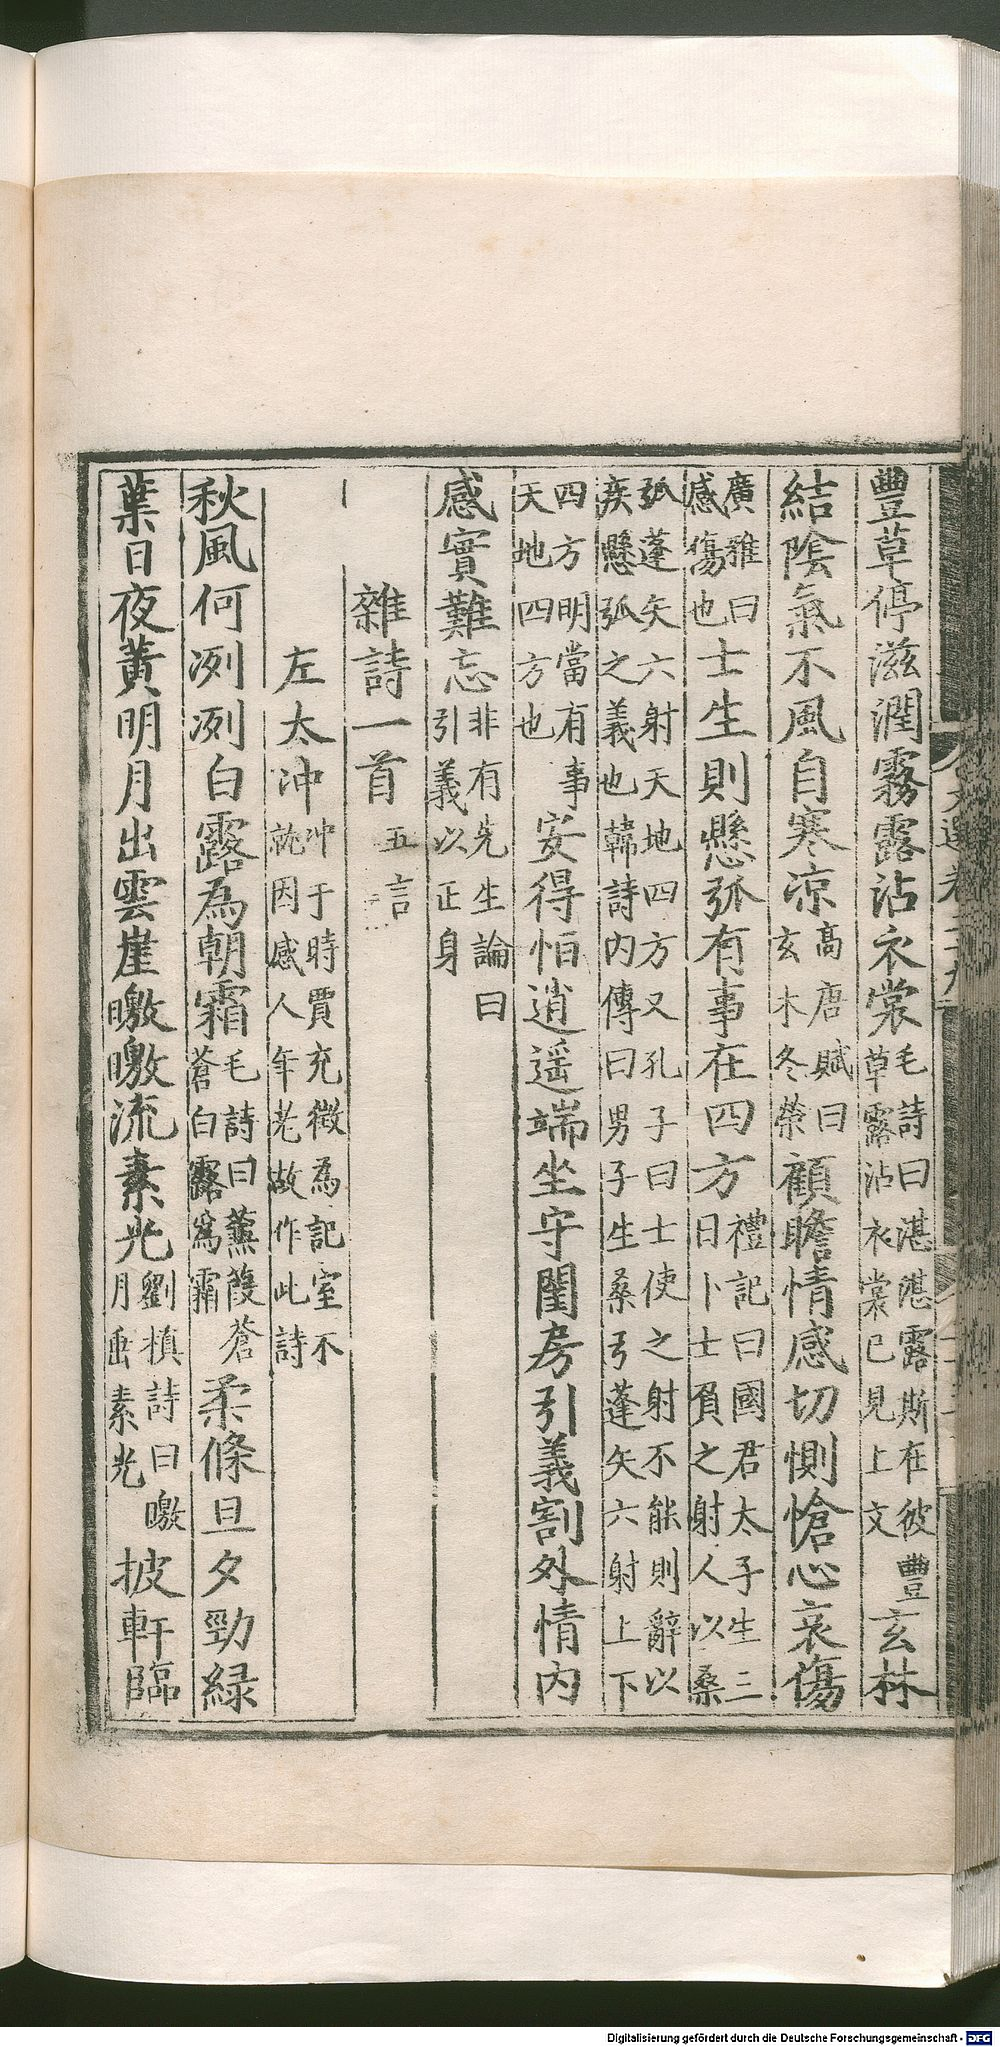 豐草停滋潤霧露沾衣裳毛詩曰湛湛露斯在彼豐草露沾衣裳已見上文玄林
結陰氣不風自寒凉高唐賦曰玄木冬榮顧瞻情感切惻愴心哀傷
廣雅曰感傷也士生則懸弧有事在四方禮記曰國君太子生三日卜士負之射人以桑
弧蓬矢六射天地四方又孔子曰士使之射不能則辭以疾懸弧之義也韓詩内傳曰男子生桑弓蓬矢六射上下
四方明當有事天地四方也安得恒逍遥端坐守閨房引義割外情内
感實難忘非有先生論曰引義以正身
雜詩一首五言
左太沖沖于時賈充徴為記室不就因感人年老故作此詩
秋風何冽冽白露為朝霜毛詩曰蒹葭蒼蒼白露為霜柔條旦夕勁緑
葉日夜黄明月出雲崖曒曒流素光劉楨詩曰曒月垂素光披軒臨
文選卷二十九
Digitalisierung gefördert durch die Deutsche Forschungsgemeinschaft - DFG